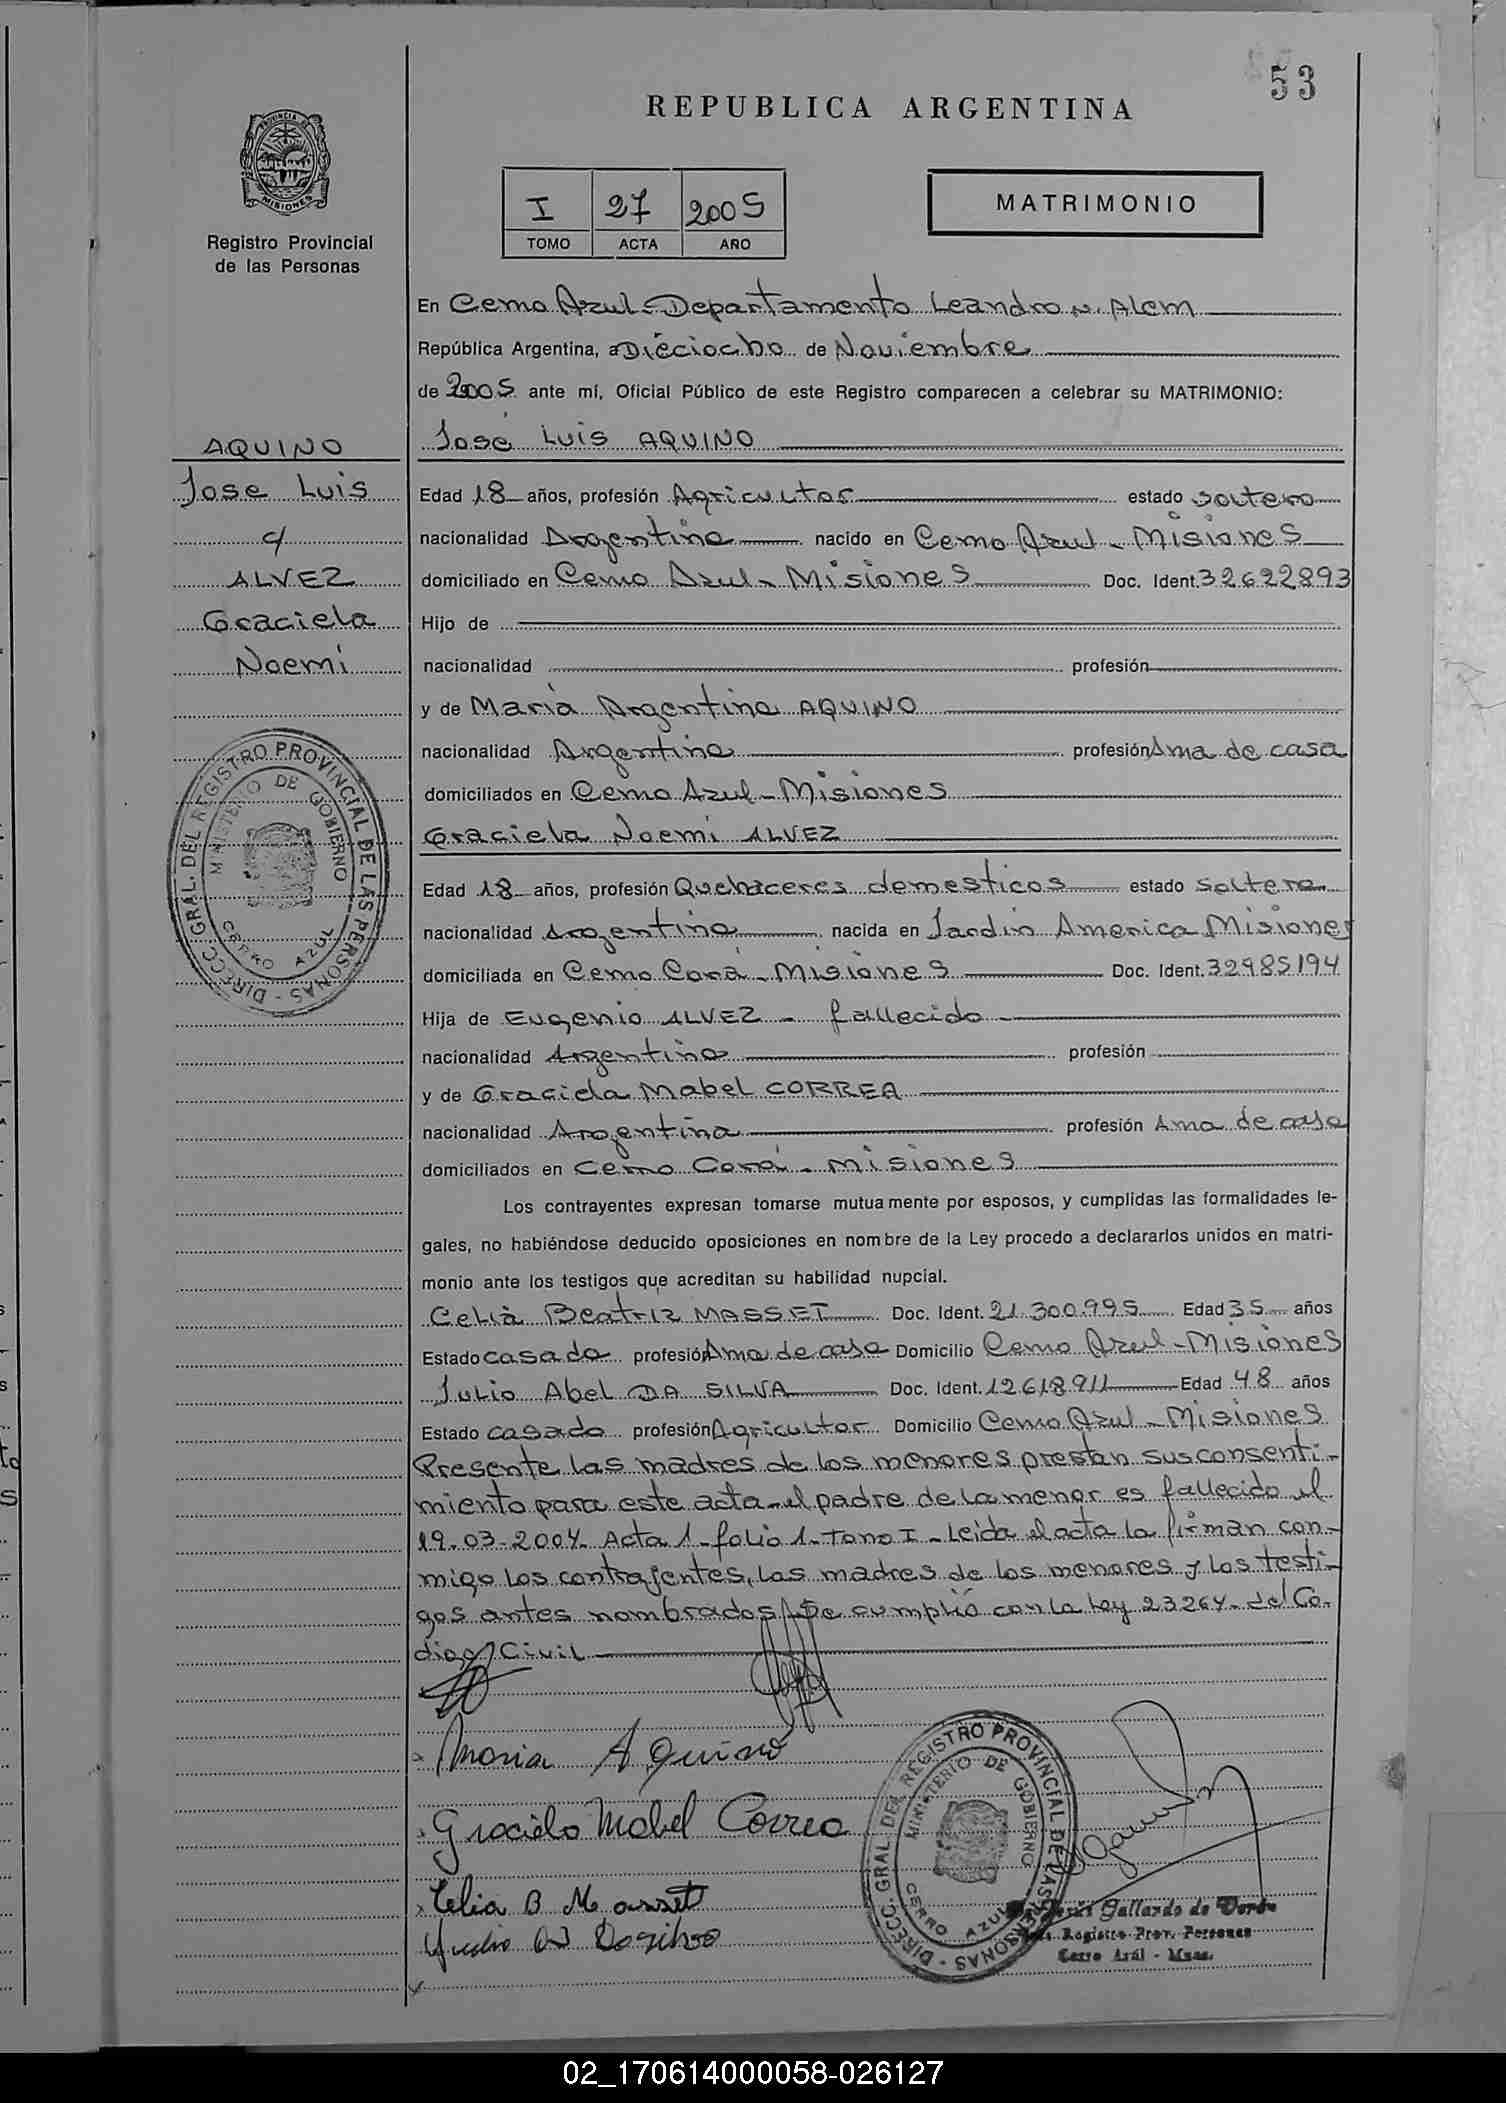 53
REPUBLICA ARGENTINA
PROVINCIA DE
MISIONES
Registro Provincial
de las Personas
I 27 2005
TOMO ACTA AÑO
MATRIMONIO
En Cerro Azul - Departamento Leandro N. Alem
República Argentina, a Dieciocho de Noviembre
de 2005 ante mí, Oficial Público de este Registro comparecen a celebrar su MATRIMONIO:
José Luis AQUINO
AQUINO
Jose Luis
c/
ALVEZ
Graciela
Noemí
Edad 18 años, profesión Agricultor estado soltero
nacionalidad Argentina nacido en Cerro Azul - Misiones
domiciliado en Cerro Azul - Misiones Doc. Ident. 32622893
Hijo de
nacionalidad profesión
y de María Argentina AQUINO
nacionalidad Argentina profesión Ama de casa
domiciliados en Cerro Azul - Misiones
Graciela Noemí ALVEZ
DIRECC. GRAL. DEL REGISTRO PROVINCIAL DE LAS PERSONAS -
MINISTERIO DE GOBIERNO
CERRO AZUL
Edad 18 años, profesión Quehaceres domesticos estado soltera
nacionalidad Argentina nacida en Jardín America Misiones
domiciliada en Cerro Corá - Misiones Doc. Ident. 32985194
Hija de Eugenio ALVEZ - fallecido -
nacionalidad Argentina profesión
y de Graciela Mabel CORREA
nacionalidad Argentina profesión Ama de casa
domiciliados en Cerro Corá - Misiones
Los contrayentes expresan tomarse mutuamente por esposos, y cumplidas las formalidades le-
gales, no habiéndose deducido oposiciones en nombre de la Ley procedo a declararlos unidos en matri-
monio ante los testigos que acreditan su habilidad nupcial.
Celia Beatriz MASSET Doc. Ident. 21.300.995 Edad 35 años
Estado casada profesión Ama de casa Domicilio Cerro Azul - Misiones
Julio Abel DA SILVA Doc. Ident. 12618911 Edad 48 años
Estado casado profesión Agricultor Domicilio Cerro Azul - Misiones
Presente las madres de los menores prestan sus consenti-
miento para este acta - el padre de la menor es fallecido el
19-03-2004. Acta 1 - folio 1 - Tomo I - Leida el acta la firman con-
migo los contrayentes, las madres de los menores y los testi-
gos antes nombrados. Se cumplió con la ley 23264 - del Co-
digo Civil
Maria Aquino
Graciela Mabel Correa
Celia B Masset
DIRECC. GRAL. DEL REGISTRO PROVINCIAL DE LAS PERSONAS -
MINISTERIO DE GOBIERNO
CERRO AZUL
Gallardo de
Registro Prov. Personas
Cerro Azúl - Mnes.
02_170614000058-026127